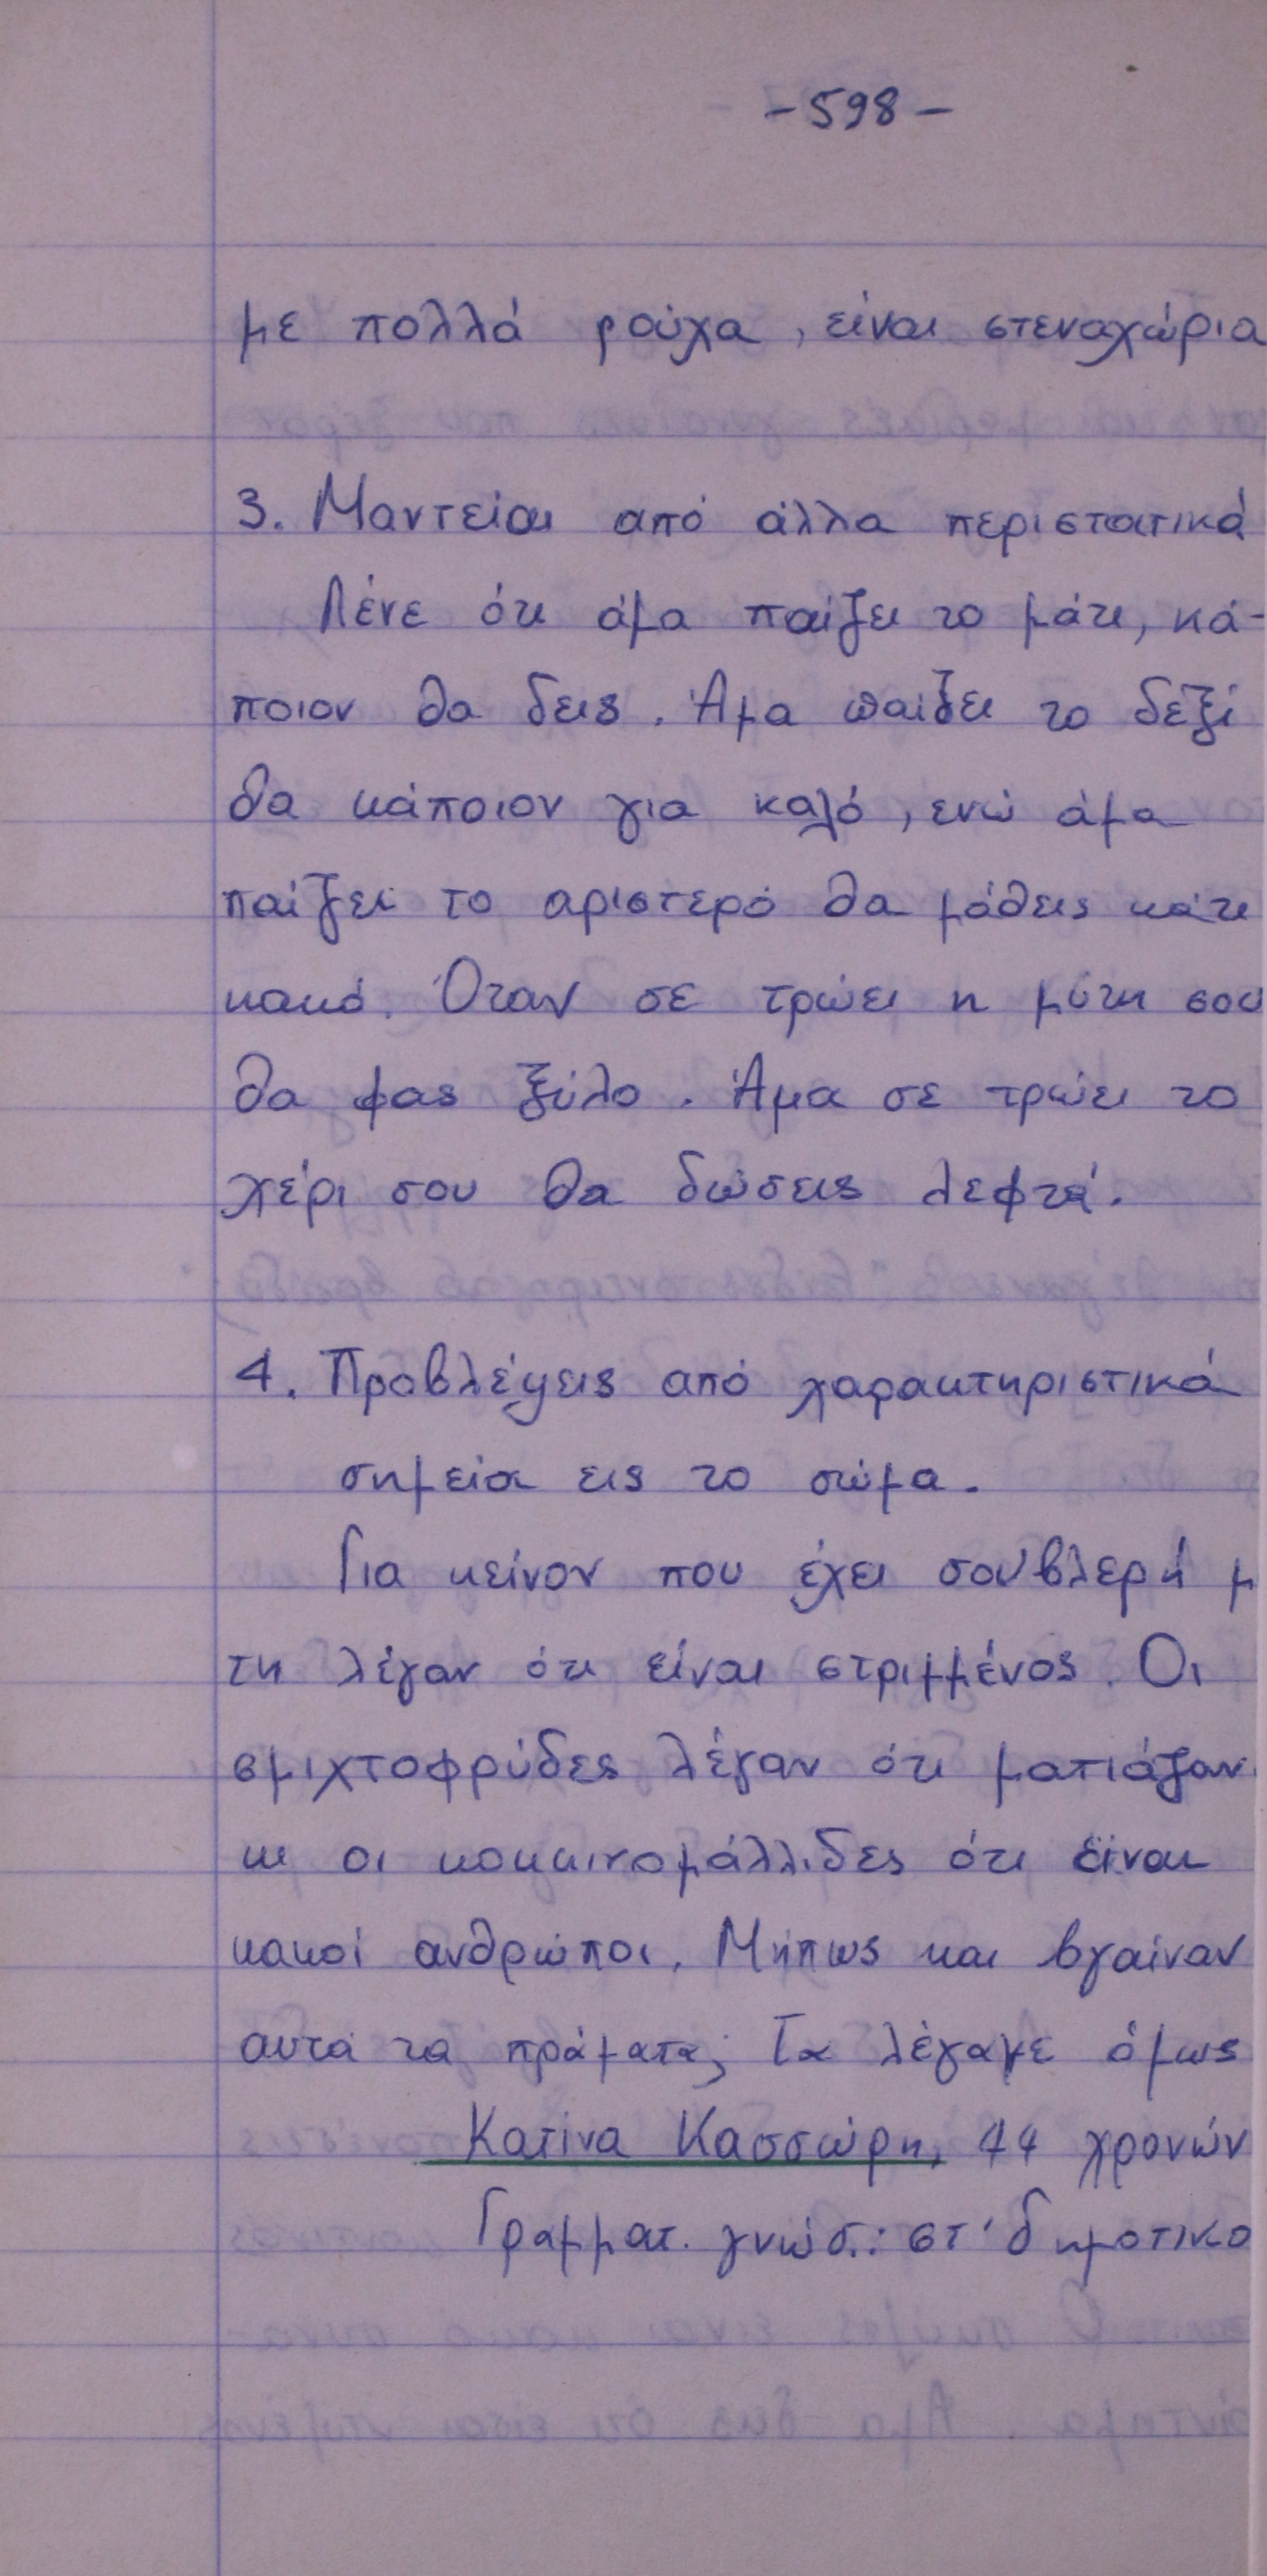 -598-
με πολλά ρούχα, είναι στεναχώρια
3. Μαντείαι από άλλα περιστατικά
Λένε ότι άμα παίζει το μάτι, κά-
ποιον θα δεις. Άμα παίζει το δεξί
θα κάποιον για καλό, ενώ άμα
παίζει το αριστερό θα μάθεις κάτι
κακό. Όταν σε τρώει η μύτη σου
θα φας ξύλο. Άμα σε τρώει το
χέρι σου θα δώσεις λεφτά.
4. Προβλέψεις από χαρακτηριστικά
σημεία εις το σώμα.
Για κείνον που έχει σουβλερή μ
τη λέγαν ότι είναι στριμμένος. Οι
σμιχτοφρύδες λέγαν ότι ματιάζαν
κι οι κοκκινομάλλιδες ότι είναι
κακοί ανθρώποι. Μήπως και βγαίναν
αυτά τα πράματα; Τα λέγαμε όμως
Κατίνα Κασσώρη, 44 χρονών
Γραμματ. γνώσ.: στ' δημοτικο